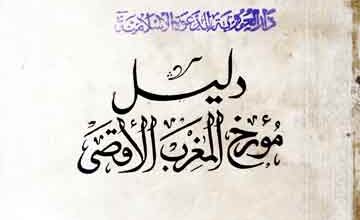 دار العروبة للدعوة الإسلامية
دليل
مؤرخ المغرب الأقصى